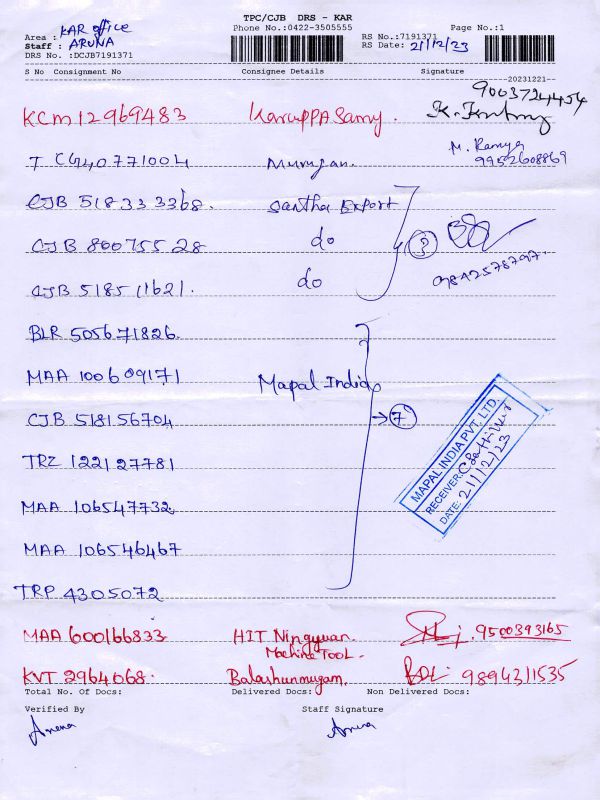 TPC/CJB DRS - KAR
Phone No.:0422-3505555
Page No.:1
Area : KAR office
Staff : ARUNA
DRS No. :DCJB7191371
RS No.:7191371
RS Date: 21/12/23
S No Consignment No Consignee Details Signature
20231221--
9003724454
KCM 12969483 KaruppaSamy.
T CG40771004 Murugan. M. Ramya
9952608869
CJB 518333368. Santha Export
CJB 80075528 do 3
CJB 518511621. do 9842578797
BLR 505671826.
MAA 100609171 Mapal India
CJB 518156704 → 7
TRZ 122127781
MAA 106547732
MAA 106546467
TRP 4305072
MAPAL INDIA PVT. LTD.
RECEIVER:
DATE: 21/12/23
MAA 600166833 HIT Ningyuan 9500393165
Machine TOOL.
KVT 2964068. Balashunmugam. 9894311535
Total No. Of Docs: Delivered Docs: Non Delivered Docs:
Verified By Staff Signature
Aruna Aruna